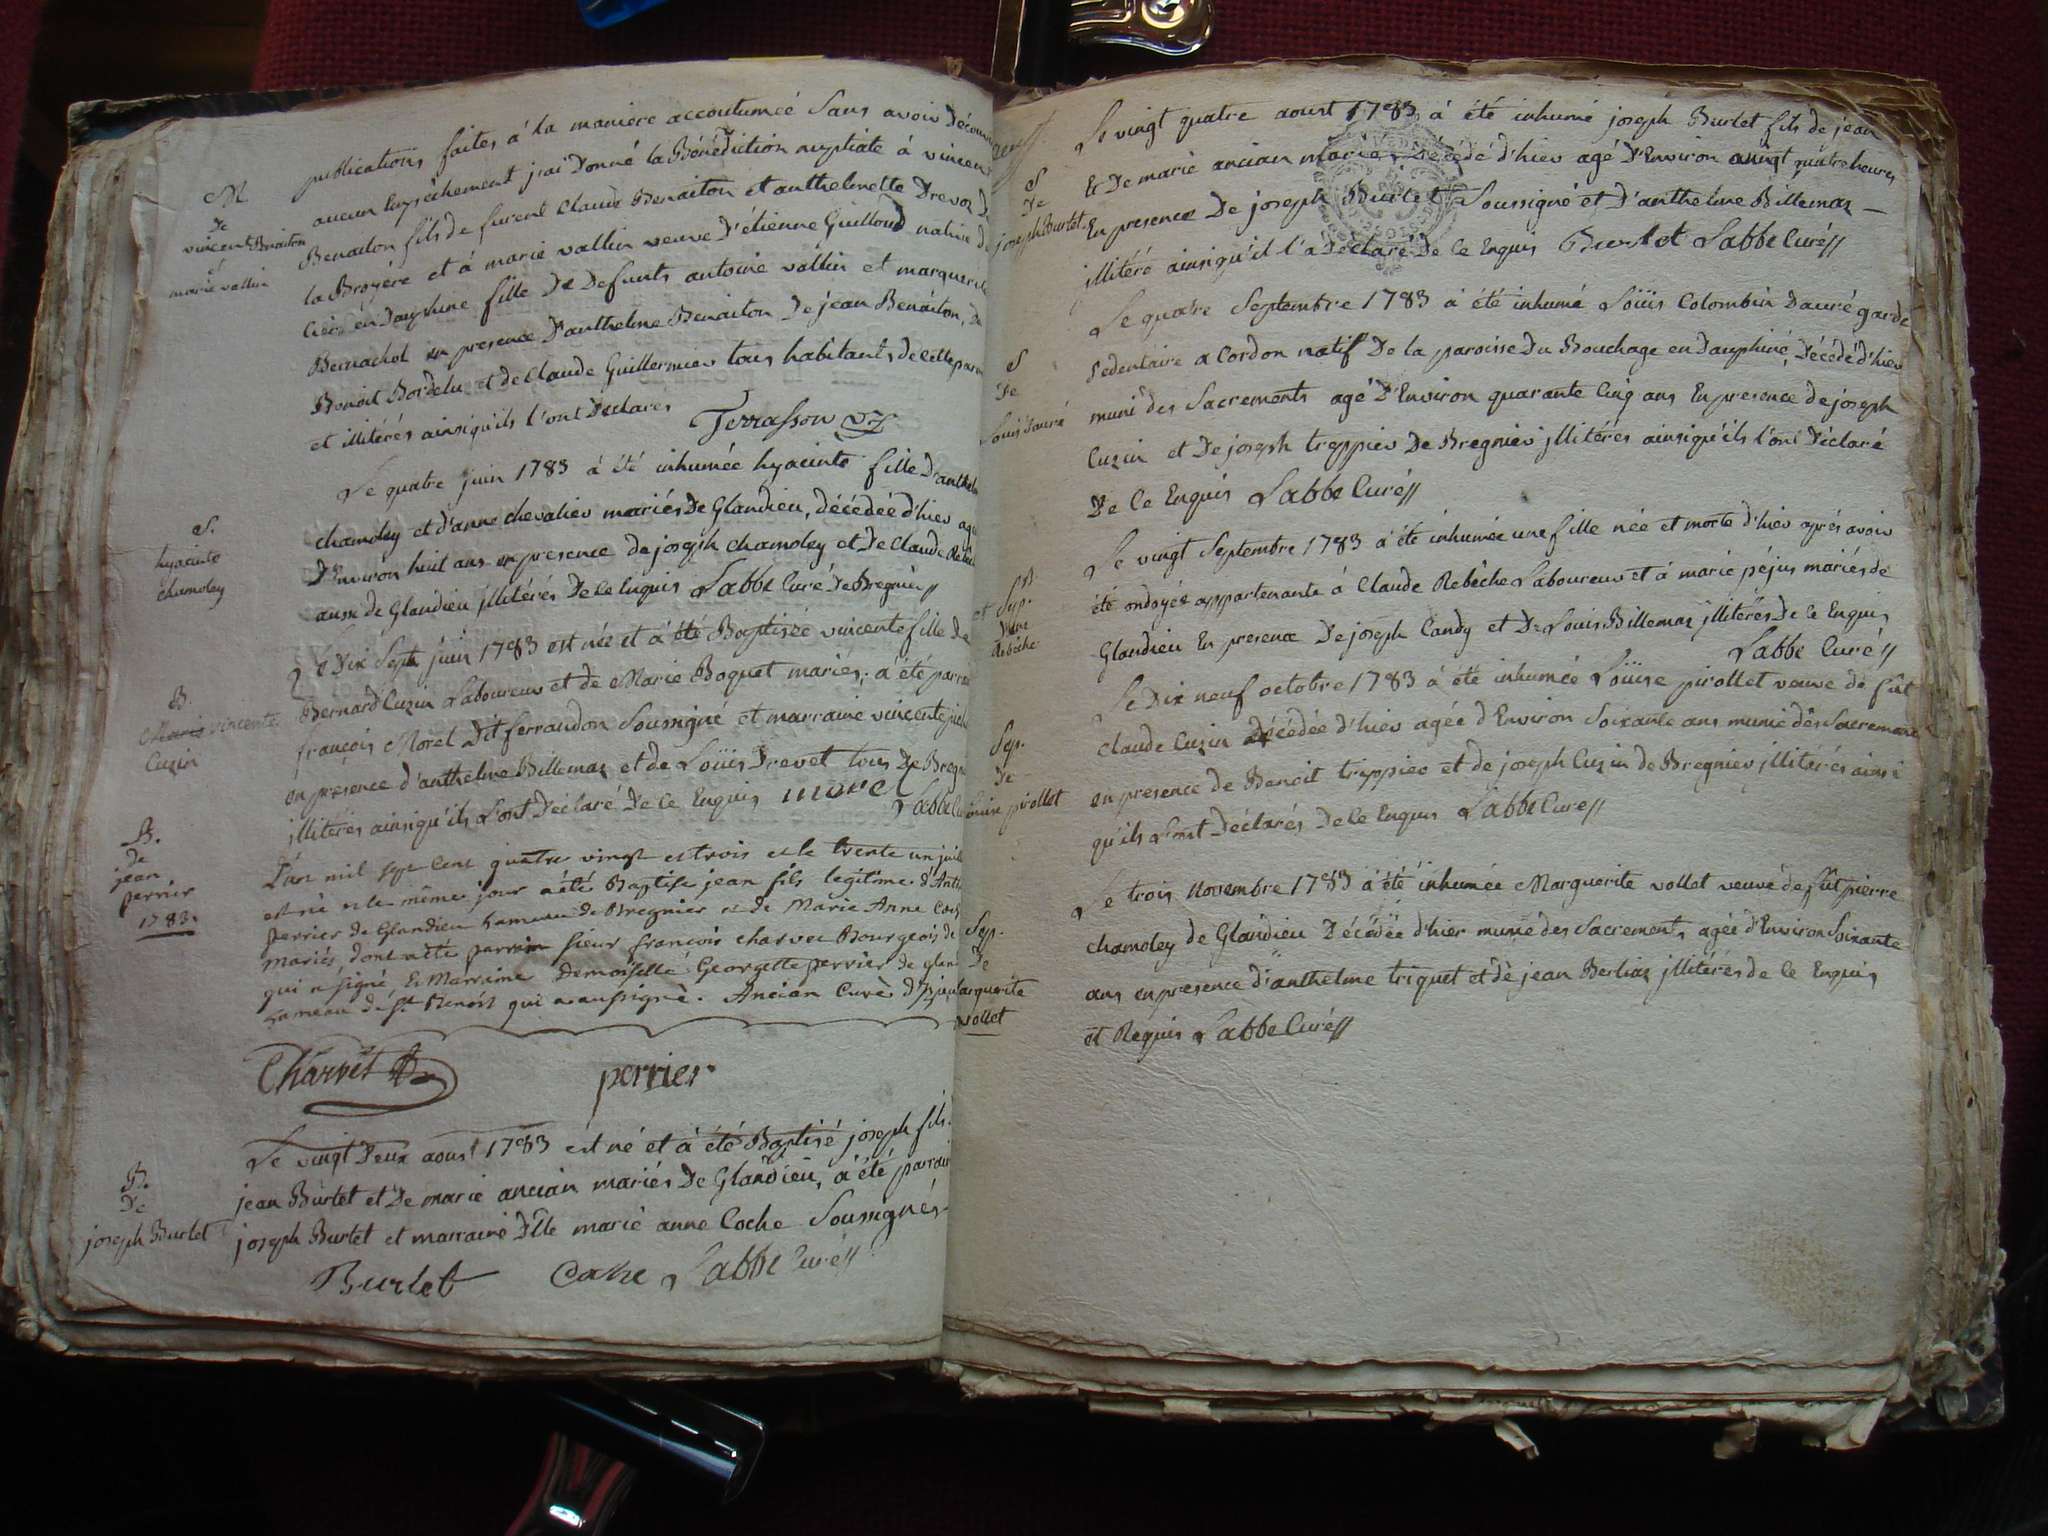 publications faites à la maniere accoutumeé Sans avoir Décou
aucun Empechement j'ai Donné la Bénédiction nuptiale à vincent
M
De
vincent Benaiton
et
marie vallin
Benaiton fils de furent Claude Benaiton et anthelmette Drevon D
la Broyére et à marie vallin veuve D'étienne Guilloud native de
en Dauphine fille De Defunts antoine vallin et marguerite
Bernachot en presence D'anthelme Benaiton De jean Benaiton, De
Benoit Bordelu et de Claude Guillermier tous habitants de cette paro
et illitérés ainsiqu'ils l'ont Declarés Terrasson
S.
hyacinte
chamoley
Le quatre juin 1783 à été inhumée hyacinte fille D'anthel
chamoley et d'anne chevalier mariés De Glandieu, décédée d'hier ag
D'Environ huit ans en presence de joseph chamoley et De Claude
aussi de Glandieu jllitérés De ce Enquis Labbe Curé De Bregnier
B.
Marie vincente
Cuzin
Le Dix Sept juin 1783 est née et à été Baptisée vincente fille De
Bernard Cuzin Laboureur et de Marie Boquet mariés; a été parrai
françois Morel Dit ferrandon Soussigné et marraine vincente
en presence d'anthelme Billemaz et de Loüis Drevet tous De Bregn
jlliterés ainsiqu'ils L'ont Déclaré De ce Enquis morel Labbe Cu
B.
de
jean
perrier
1783.
L'an mil sept cent quatre vingt et trois et le trente un juil
est né et le même jour a été Baptisé jean fils legitime d'Anth
perrier de Glandieu hameau de Bregnier et de Marie Anne Coch
mariés, dont a été parrain sieur françois charvet Bourgeois de
qui a signé, Et Marraine Demoiselle Georgette perrier de glan
hameau de St Benoit qui a aussi signé. Ancien Curé
Charvet perrier
B.
De
joseph Burlet
Le vingt Deux aoust 1783 est né et à été Baptisé joseph fils
jean Burlet et De marie ancian mariés De Glandieu, à été parrain
joseph Burlet et marraine Dlle marie anne Coche Soussignés
Burlet Coche Labbe Curé
S
De
joseph Burlet
Le vingt quatre aoust 1783 à été inhumé joseph Burlet fils de jean
Et De marie ancian mariés Décédé d'hier agé D'Environ vingt quatre heures
En presence De joseph Burlet Soussigné et D'anthelme Billemaz
jllitéré ainsiqu'il l'a Déclaré De ce Enquis Burlet Labbe Curé
S
De
Louis Dauré
Le quatre Septembre 1783 à été inhumé Loüis Colombin Dauré garde
Sedentaire a Cordon natif De la paroisse Du Bouchage en Dauphiné, Décédé d'hier
muni des Sacrements agé D'Environ quarante Cinq ans En presence de joseph
Cuzin et De joseph treppier De Bregnier jllitérés ainsiqu'ils l'ont Déclaré
De Ce Enquis Labbe Curé
B
et Sep.
D'une
Rebêche
Le vingt Septembre 1783 à été inhumée une fille née et morte d'hier après avoir
été ondoyée appartenante à Claude Rebêche Laboureur et à marie péjus mariés de
Glandieu En presence De joseph Candy et De Louis Billemaz jllitérés De ce Enquis
Labbe Curé
Sep.
De
Louise pirollet
Le Dix neuf octobre 1783 à été inhumée Loüise pirollet veuve de fût
Claude Cuzin décédée d'hier agée d'Environ Soixante ans munie des Sacrements
en presence de Benoit treppier et de joseph Cuzin de Bregnier jllitérés ainsi
qu'ils L'ont Declarés De ce Enquis Labbe Curé
Sep.
De
Marguerite
vollet
Le trois Novembre 1783 à été inhumée Marguerite vollet veuve de fût pierre
chamoley de Glandieu Décédée d'hier munie des Sacrements agée d'Environ Soixante
ans en presence d'anthelme triquet et de jean Berliaz jllitérés de ce Enquis
et Requis Labbe Curé